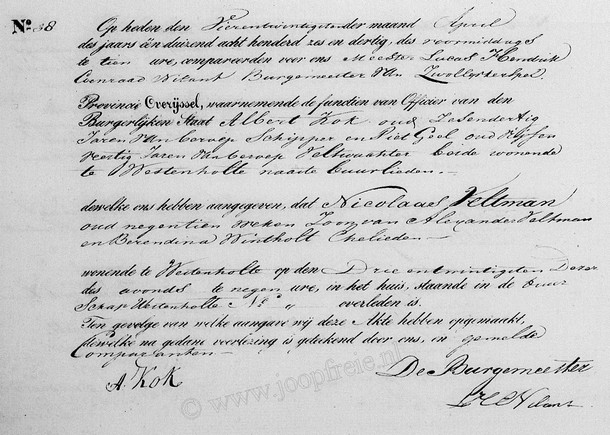 No. 38
Op heden den Vierentwintigsten der maand April
des jaars één duizend acht honderd zes en dertig, des voormiddags
te tien ure, compareerden voor ons Meester Lucas Hendrik
Coenraad Nilant Burgemeester van Zwollerkerspel.
Provincie Overijssel, waarnemende de functien van Officier van den
Burgerlijken Staat Albert Kok oud Zesendertig
Jaren van beroep Schipper en Piet Geel oud
Veertig Jaren van beroep Veldwachter beide wonende
te Westenholte naaste buurlieden.
dewelke ons hebben aangegeven, dat Nicolaas Veltman
oud negentien weken Zoon van Alexander Veltman
en Berendina Wintholt Ehelieden
wonende te Westenholte op den Drie entwintigsten Dezer
des avonds te negen ure, in het huis, staande in de Buur
Schap Westenholte No. overleden is.
Ten gevolge van welke aangave wij deze Akte hebben opgemaakt,
dewelke na gedane voorlezing is geteekend door ons, en gemelde
Comparanten
A. Kok
De Burgemeester
Nilant
© www.joopfreie.nl